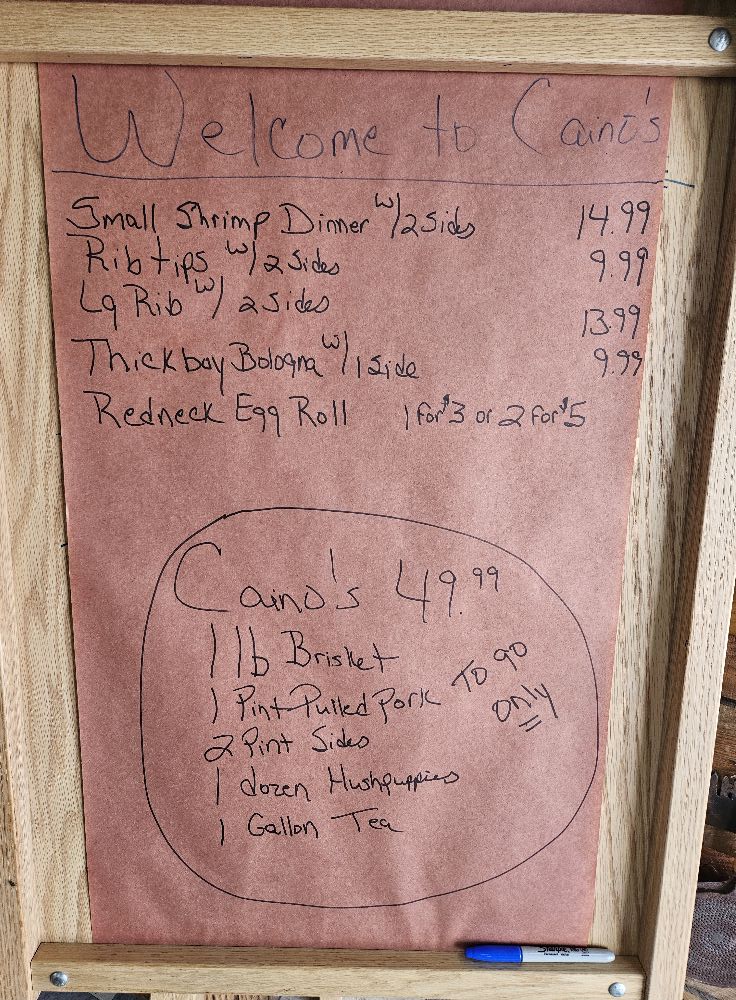 Welcome to Caino's
Small Shrimp Dinner w/2 sides 14.99
Rib tips w/2 Sides 9.99
Lg Rib w/ 2 sides 13.99
Thickboy Bologna w/1 Side 9.99
Redneck Egg Roll 1 for $3 or 2 for $5
Caino's 49.99
1 lb Brisket
1 Pint Pulled Pork
2 Pint Sides
1 dozen Hushpuppies
1 Gallon Tea
To go
only
Sharpie